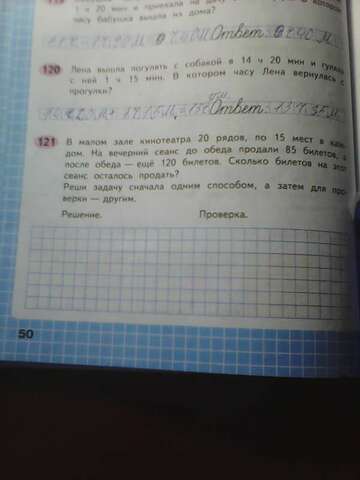 1 ч 20 мин и приехала на дачу
часу бабушка вышла из дома?
Ответ
120 Лена вышла погулять с собакой в 14 ч 20 мин и гуляла
с ней 1 ч 15 мин. В котором часу Лена вернулась с
прогулки?
Ответ
121 В малом зале кинотеатра 20 рядов, по 15 мест в каж-
дом. На вечерний сеанс до обеда продали 85 билетов, а
после обеда — ещё 120 билетов. Сколько билетов на этот
сеанс осталось продать?
Реши задачу сначала одним способом, а затем для про-
верки — другим.
Решение. Проверка.
50